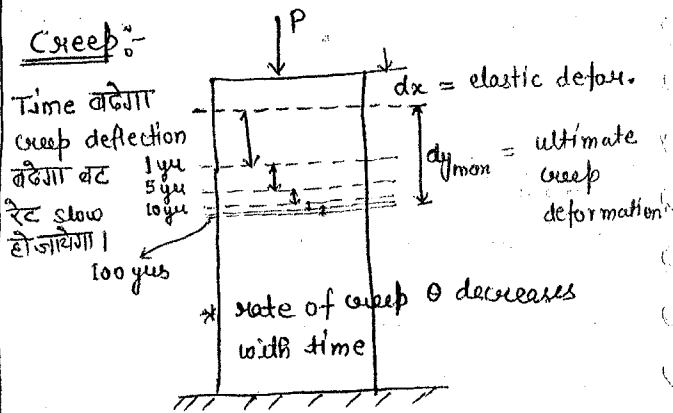 Creep:-
P
dx = elastic defor.
Time बढेगा
creep deflection
बढेगा बट
रेट slow
हो जायेगा।
1 yr
5 yr
10 yr
100 yrs
dy = ultimate
creep
deformation
* rate of creep θ decreases
with time